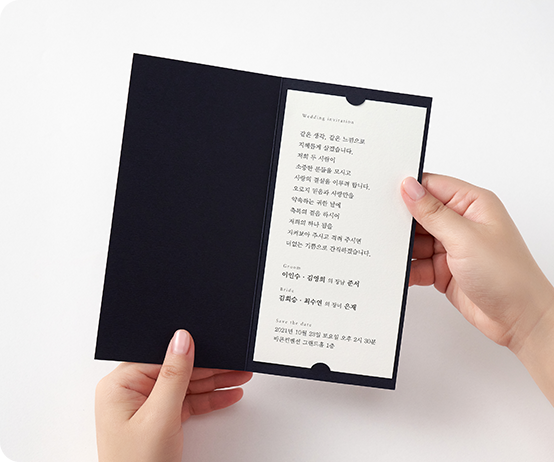 Wedding invitation
같은 생각, 같은 느낌으로
지혜롭게 살겠습니다.
저희 두 사람이
소중한 분들을 모시고
사랑의 결실을 이루려 합니다.
오로지 믿음과 사랑만을
약속하는 귀한 날에
축복의 걸음 하시어
저희의 하나 됨을
지켜보아 주시고 격려 주시면
더없는 기쁨으로 간직하겠습니다.
Groom
이인수 · 김영희 의 장남 준서
Bride
김희승 · 최수연 의 장녀 은재
Save the date
2021년 10월 23일 토요일 오후 2시 30분
비쥰컨벤션 그랜드홀 1층